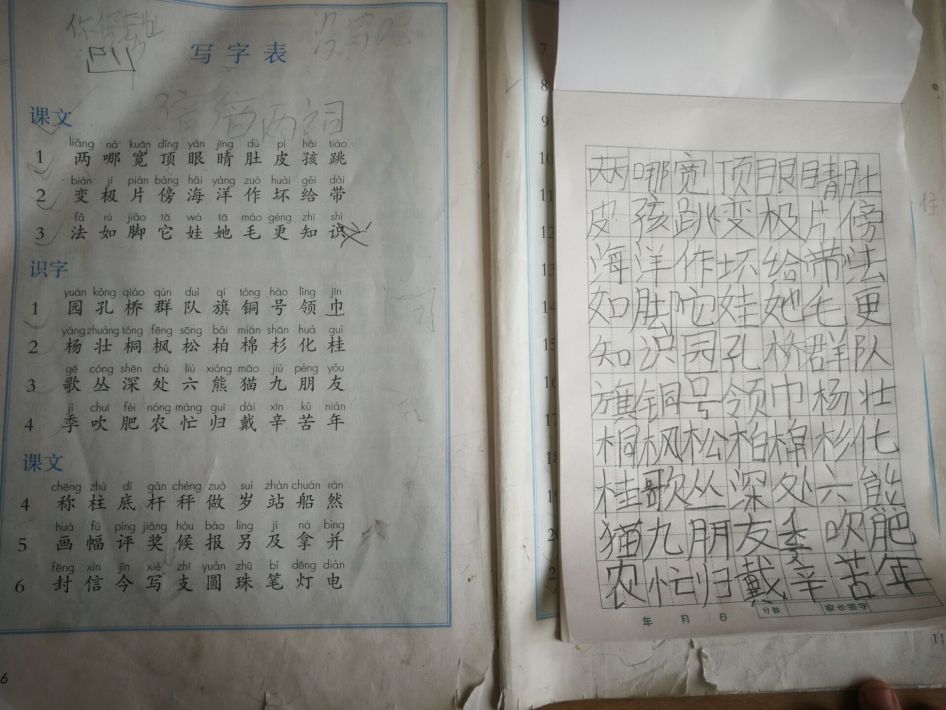 写字表
课文
liǎng nǎ kuān dǐng yǎn jīng dù pí hái tiào
1 两 哪 宽 顶 眼 睛 肚 皮 孩 跳
biàn jí piàn bàng hǎi yáng zuò huài gěi dài
2 变 极 片 傍 海 洋 作 坏 给 带
fǎ rú jiǎo tā wá tā máo gèng zhī shí
3 法 如 脚 它 娃 她 毛 更 知 识
识字
yuán kǒng qiáo qún duì qí tóng hào lǐng jīn
1 园 孔 桥 群 队 旗 铜 号 领 巾
yáng zhuàng tóng fēng sōng bǎi mián shān huà guì
2 杨 壮 桐 枫 松 柏 棉 杉 化 桂
gē cóng shēn chù liù xióng māo jiǔ péng yǒu
3 歌 丛 深 处 六 熊 猫 九 朋 友
jì chuī féi nóng máng guī dài xīn kǔ nián
4 季 吹 肥 农 忙 归 戴 辛 苦 年
课文
chēng zhù dǐ gǎn chèng zuò suì zhàn chuán rán
4 称 柱 底 杆 秤 做 岁 站 船 然
huà fú píng jiǎng hòu bào lìng jí ná bìng
5 画 幅 评 奖 候 报 另 及 拿 并
fēng xìn jīn xiě zhī yuán zhū bǐ dēng diàn
6 封 信 今 写 支 圆 珠 笔 灯 电
6
7
8
9
10
11
12
13
14
15
16
17
18
两哪宽顶眼睛肚
皮孩跳变极片傍
海洋作坏给带法
如 娃她毛更
知识园孔桥群队
旗铜号领巾杨壮
桐枫松柏棉杉化
桂歌丛深处六
猫九朋友季吹肥
农忙归戴辛苦年
年 月 日 分数 家长签字
11